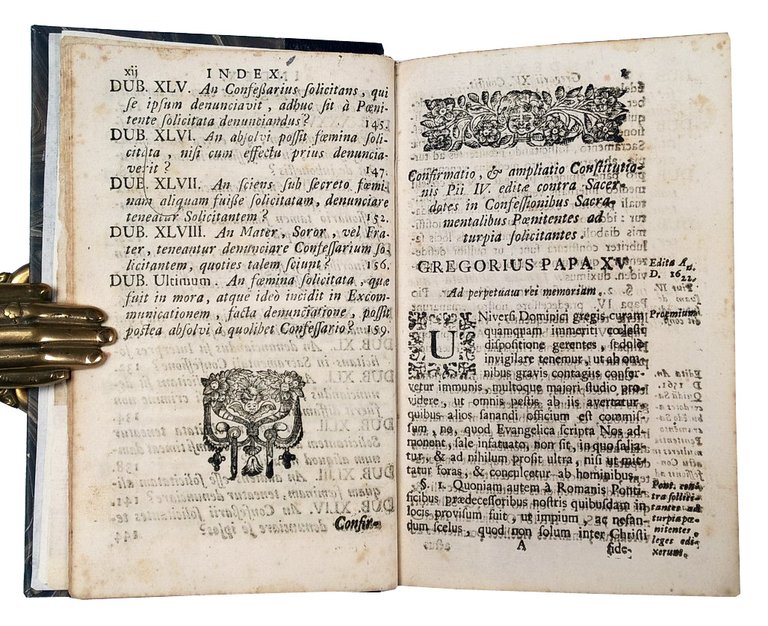 xij INDEX.
DUB. XLV. An Confeßarius solicitans, qui
se ipsum denunciavit, adhuc sit à Pœni-
tente solicitata denunciandus? 145.
DUB. XLVI. An absolvi possit fœmina soli-
citata, nisi cum effectu prius denuncia-
verit? 147.
DUB. XLVII. An sciens sub secreto fœmi-
nam aliquam fuiße solicitatam, denunciare
teneatur Solicitantem? 152.
DUB. XLVIII. An Mater, Soror, vel Fra-
ter, teneantur denunciare Confessarium so-
licitantem, quoties talem sciunt? 156.
DUB. Ultimum. An fœmina solicitata, quæ
fuit in mora, atque ideo incidit in Excom-
municationem, facta denunciatione, possit
postea absolvi à quolibet Confessario? 159.
Confir-
Confirmatio, & ampliatio Constitutio-
nis Pii IV. editæ contra Sacer-
dotes in Confessionibus Sacra-
mentalibus Pœnitentes ad
turpia solicitantes.
GREGORIUS PAPA XV.
Edita An.
D. 1622.
Ad perpetuam rei memoriam.
Prœmium
UNiversi Dominici gregis curam
quamquam immeriti cœlesti
dispositione gerentes, sedulo
invigilare tenemur, ut ab om-
nibus gravis contagiis conser-
vetur immunis, multoque majori studio pro-
videre, ut omnis pestis ab iis avertatur,
quibus alios sanandi officium est commis-
sum, ne, quod Evangelica scripta Nos ad-
monent, sale infatuato, non sit, in quo salia-
tur, & ad nihilum prosit ultra, nisi ut mit-
tatur foras, & conculcetur ab hominibus.
§. 1. Quoniam autem à Romanis Ponti-
ficibus prædecessoribus nostris quibusdam in
locis provisum fuit, ut impium, ac nefan-
dum scelus, quod non solum inter Christi
Pont. con-
tra sollici-
tantes ad
turpia pœ-
nitentes
leges edi-
xerunt.
A fide-